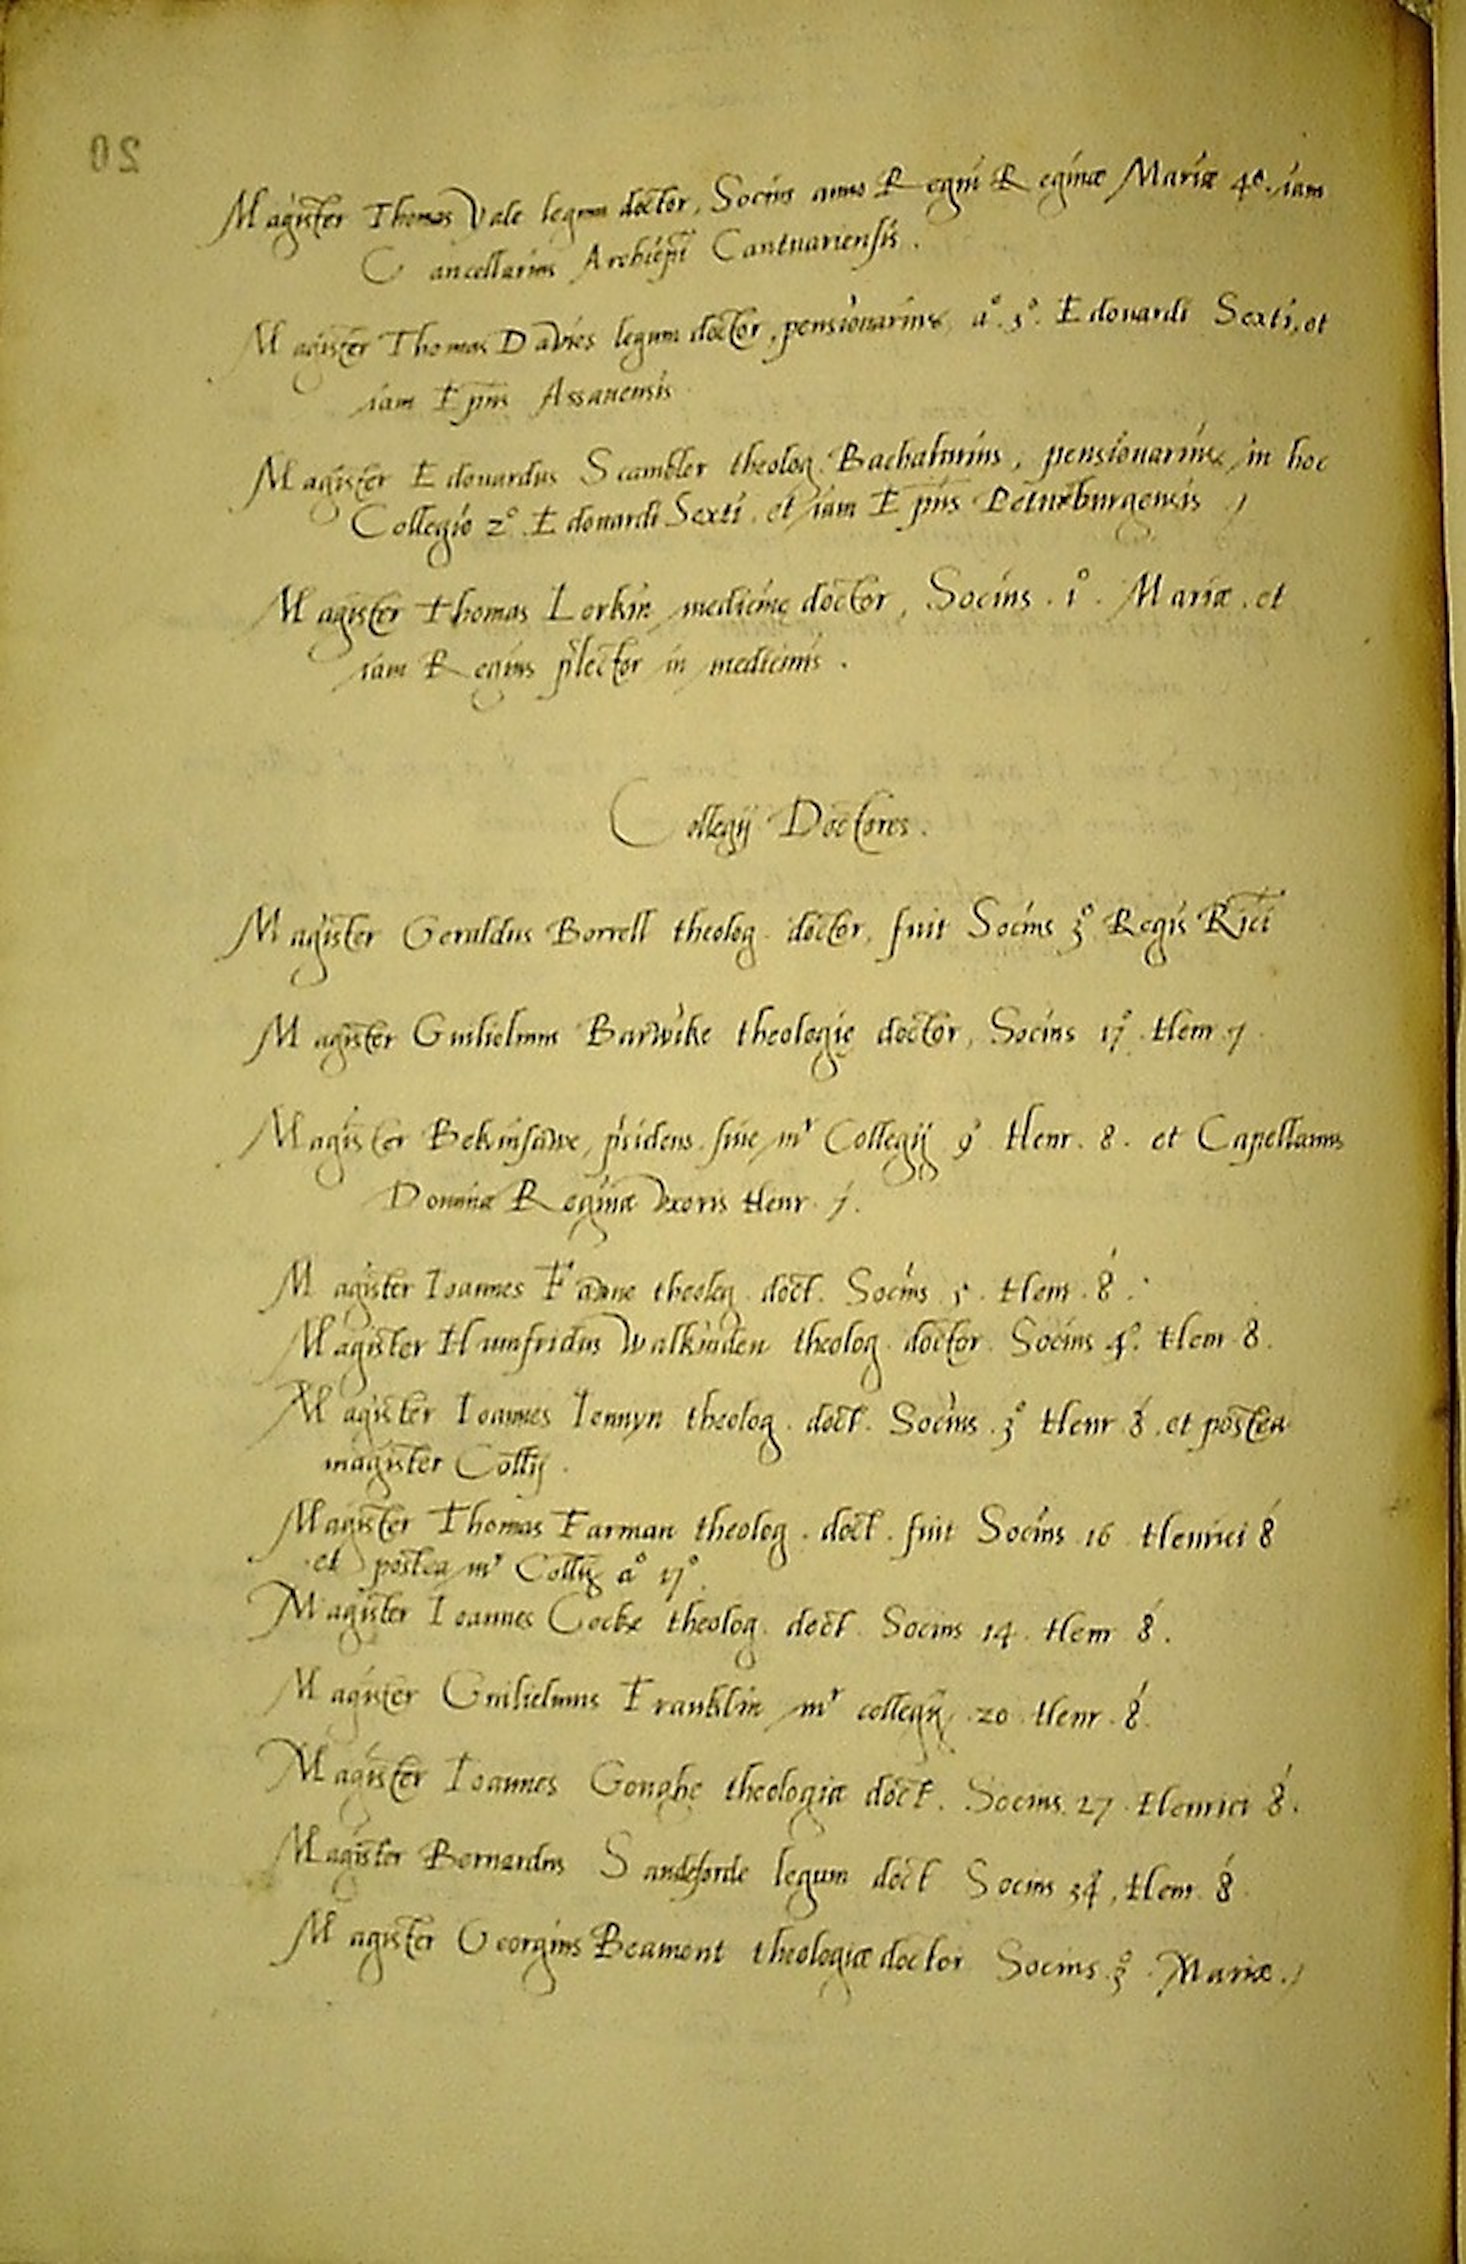 Magister Thomas Vale legum doctor, Socius anno Regni Reginæ Mariæ 4º. iam
Cancellarius Archiepi Cantuariensis.
Magister Thomas Davies legum doctor, pensionarius, aº. 5º. Edouardi Sexti, et
iam Epus Assauensis
Magister Edouardus Scambler theolog. Bachalurius, pensionarius in hoc
Collegio 2º. Edouardi Sexti. et iam Epus Peturburgensis
Magister Thomas Lorkin medicinę doctor, Socius. 1º. Mariæ. et
iam Regius plector in medicinis.
Collegij Doctores.
Magister Geraldus Borrell theolog. doctor, fuit Socius 3º Regis Rici
Magister Guilielmus Barwike theologię doctor, Socius 17º. Henr. 7.
Magister Bekinsawe, pridens. siue mr Collegij 9º Henr. 8. et Capellanus
Dominæ Reginæ Vxoris Henr. 7.
Magister Ioannes Fawne theolog. doct. Socius. 5. Henr. 8.
Magister Humfridus Walkinden theolog. doctor. Socius 4º. Henr 8.
Magister Ioannes Iennyn theolog. doct. Socius. 3º Henr 8. et postea
magister Collij.
Magister Thomas Farman theolog. doct. fuit Socius 16 Henrici 8
et postea mr Collij aº 17º.
Magister Ioannes Cocke theolog. doct. Socius 14. Henr 8.
Magister Guilielmus Franklin mr collegij. 20. Henr. 8.
Magister Ioannes Goughe theologiæ doct. Socius. 27. Henrici 8.
Magister Bernardus Sandeforde legum doct Socius 34, Henr. 8.
Magister Georgius Beamont theologiæ doctor Socius. 3º. Mariæ.